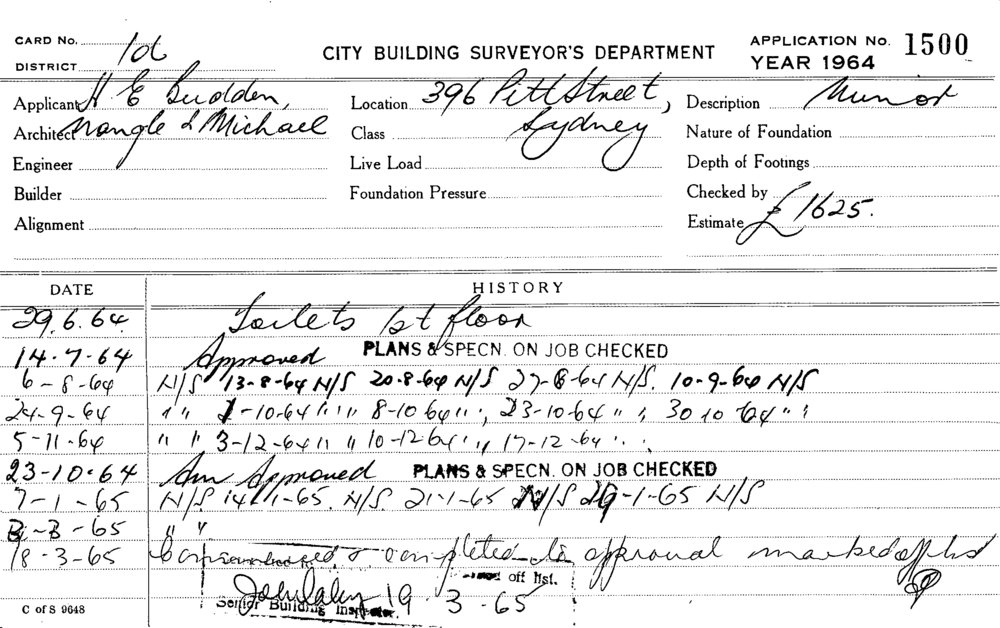 CARD No. 1d
DISTRICT
CITY BUILDING SURVEYOR'S DEPARTMENT
APPLICATION No. 1500
YEAR 1964
Applicant H E Budden,
Location 396 Pitt Street,
Description Minor
Architect Nangle & Michael
Class Sydney
Nature of Foundation
Engineer
Live Load
Depth of Footings
Builder
Foundation Pressure
Checked by
Alignment
Estimate £1625.
DATE HISTORY
29.6.64 Toilets 1st floor
14-7-64 Approved PLANS & SPECN. ON JOB CHECKED
6-8-64 N/S 13-8-64 N/S 20-8-64 N/S 27-8-64 N/S. 10-9-64 N/S
24-9-64 " " 1-10-64 " " 8-10-64 " ", 23-10-64 " ", 30 10 64 " "
5-11-64 " " 3-12-64 " " 10-12-64 " ", 17-12-64 " "
23-10-64 Am Approved PLANS & SPECN. ON JOB CHECKED
7-1-65 N/S 14-1-65 N/S. 21-1-65 N/S 29-1-65 N/S
3-3-65 " "
18-3-65 completed to approval marked off list
off list.
Senior Building Inspector. 19-3-65
C of S 9648